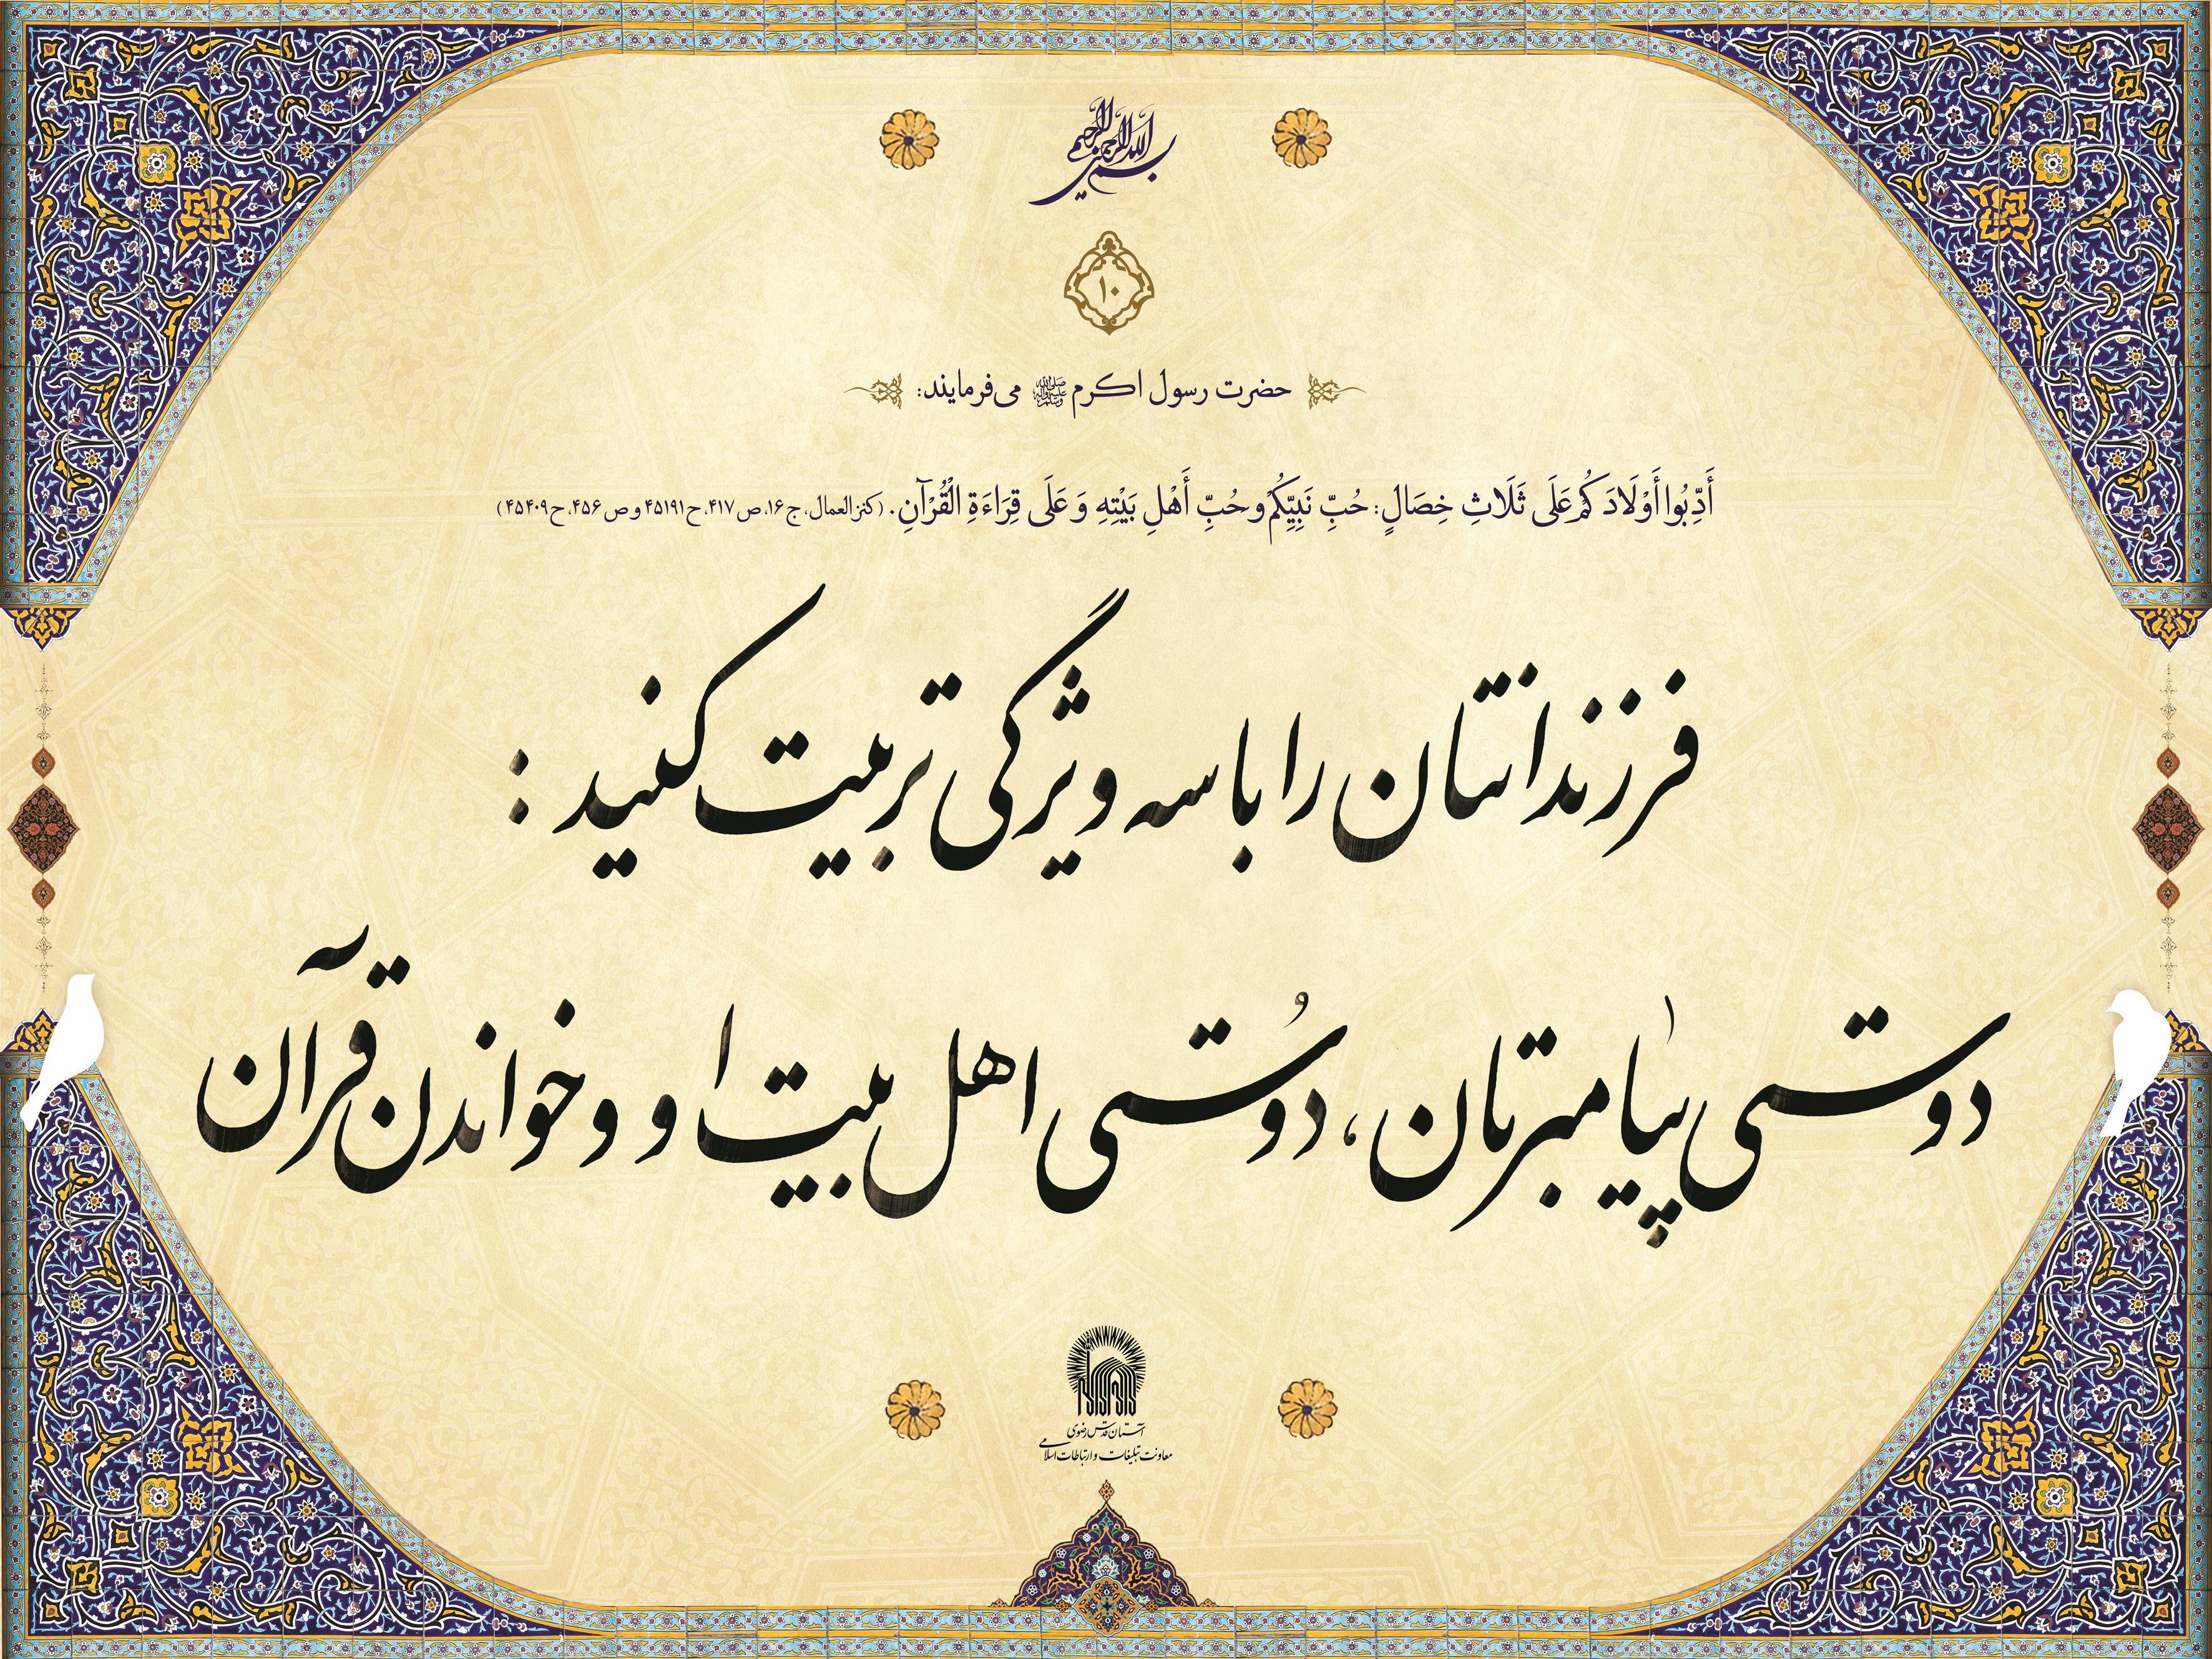 بسم الله الرحمن الرحیم
۱۰
حضرت رسول اکرم صلی‌الله‌علیه‌وآله‌وسلم می‌فرمایند:
أَدِّبُوا أَوْلَادَكُمْ عَلَى ثَلَاثِ خِصَالٍ: حُبِّ نَبِيِّكُمْ وَ حُبِّ أَهْلِ بَيْتِهِ وَ عَلَى قِرَاءَةِ الْقُرْآنِ. (کنزالعمال، ج۱۶، ص۴۱۷، ح۴۵۱۹۱ و ص۴۵۶، ح۴۵۴۰۹)
فرزندانتان را با سه ویژگی تربیت کنید :
دوستی پیامبرتان، دوستی اهل بیت او و خواندن قرآن
آستان قدس رضوی
معاونت تبلیغات و ارتباطات اسلامی